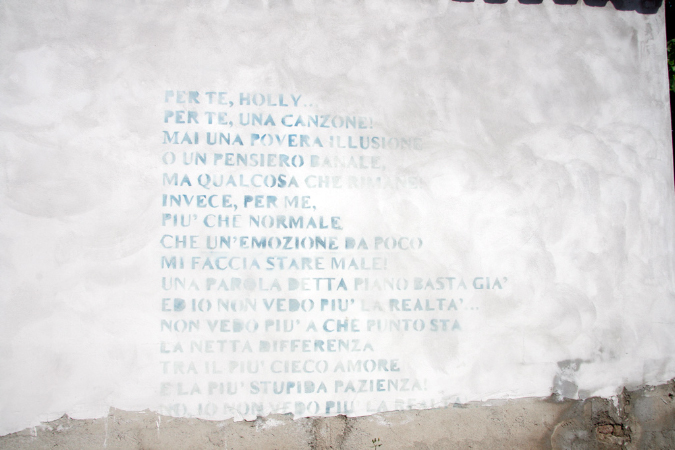 PER TE, HOLLY...
PER TE, UNA CANZONE!
MAI UNA POVERA ILLUSIONE
O UN PENSIERO BANALE,
MA QUALCOSA CHE RIMANE!
INVECE, PER ME,
PIU' CHE NORMALE
CHE UN'EMOZIONE DA POCO
MI FACCIA STARE MALE!
UNA PAROLA DETTA PIANO BASTA GIA'
ED IO NON VEDO PIU' LA REALTA'...
NON VEDO PIU' A CHE PUNTO STA
LA NETTA DIFFERENZA
TRA IL PIU' CIECO AMORE
E LA PIU' STUPIDA PAZIENZA!
NO, IO NON VEDO PIU' LA REALTA'